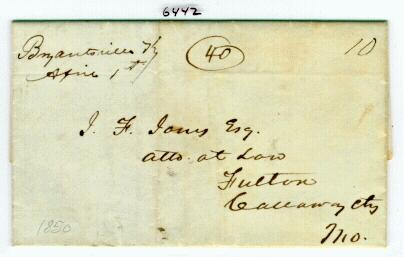 6442
Bryantsville Ky
April 1st
40
10
J. F. Jones Esq.
atto. at Law
Fulton
Callaway cty
Mo.
1850